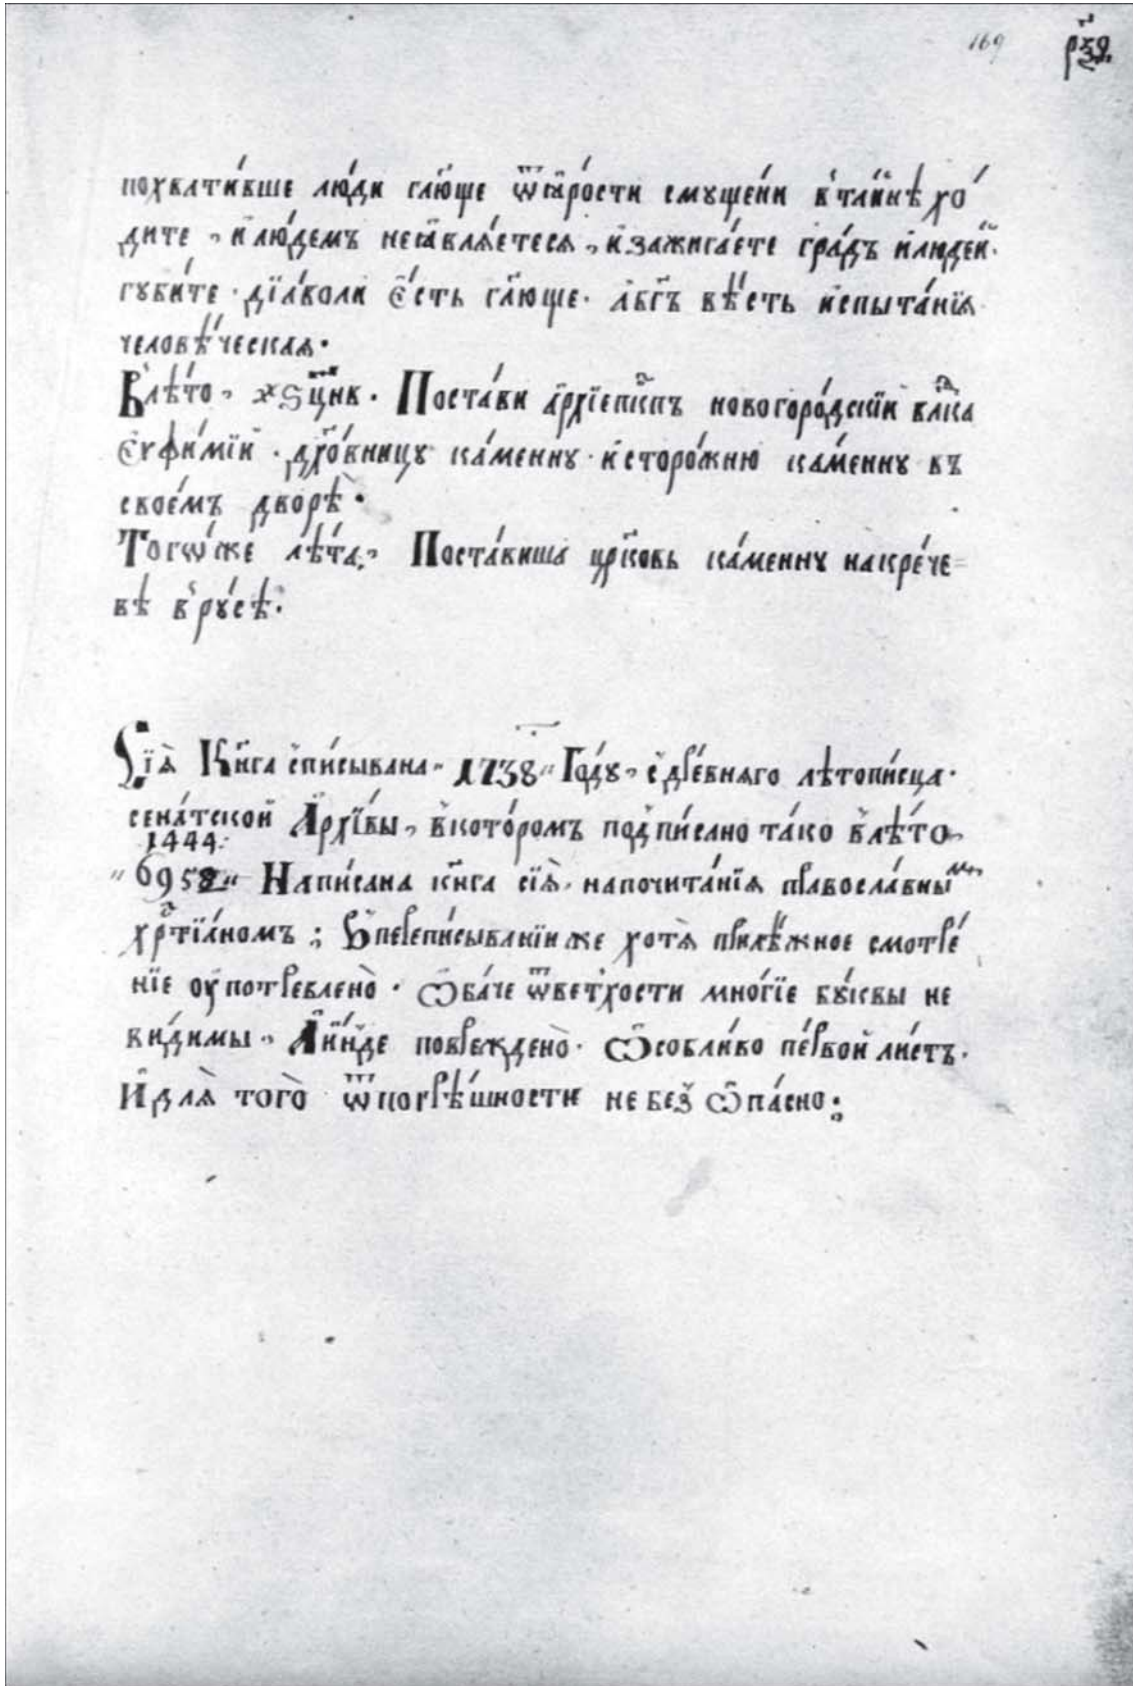 169 р҃ѯ҃ѳ
похвати́вше лю́ди гл҃юще ѿꙗ҆́рости смꙋще́ни в̾та́йнѣ хо́
дите , и҆лю́демъ неꙗ҆вля́етеся , и҆зажига́ете гра́дъ и҆люде́й .
гꙋби́те . дїа́воли є҆́сть гл҃юще . а҆бг҃ъ вѣ́сть и҆спыта́нїя
человѣ́ческая .
Влѣ́то , ҂ѕцн҃в . Поста́ви а҆рхїепи́скпъ новогоро́дскїи влⷣка
є҆ѵфи́мїй . дꙋхо́вницꙋ ка́меннꙋ . и҆сторо́жню ка́меннꙋ въ
свое́мъ дворѣ̀ .
Тогѡ́же лѣ́та , Поста́виша цр҃ковь ка́меннꙋ накре́че=
вѣ в̾рꙋ́сѣ .
Сїѧ̀ Кни́га спи́сывана „ 1738 „ Го́дꙋ , с̾дре́вняго лѣтопи́сца .
сена́тской Архи́вы , в̾кото́ромъ подпи́сано та́ко в̾лѣ́то
1444 :
„ 6952 „ Напи́сана кни́га сїѧ̀ , напочита́нїя правосла́вныⷨ
хрⷭ҇тїа́номъ ; В̾перепи́сыванїи же хотѧ̀ прилѣ́жное смотре́
нїе оу҆потребленò . Ѻ҆ба́че ѿве́тхости мно́гїе бꙋ́квы не
ви́димы , А҆и҆́нде поврежденò . Ѡ҆собли́во пе́рвой ли́стъ .
И҆длѧ̀ тогò ѿпогрѣ́шности не без̾ ѡ҆па́сно :